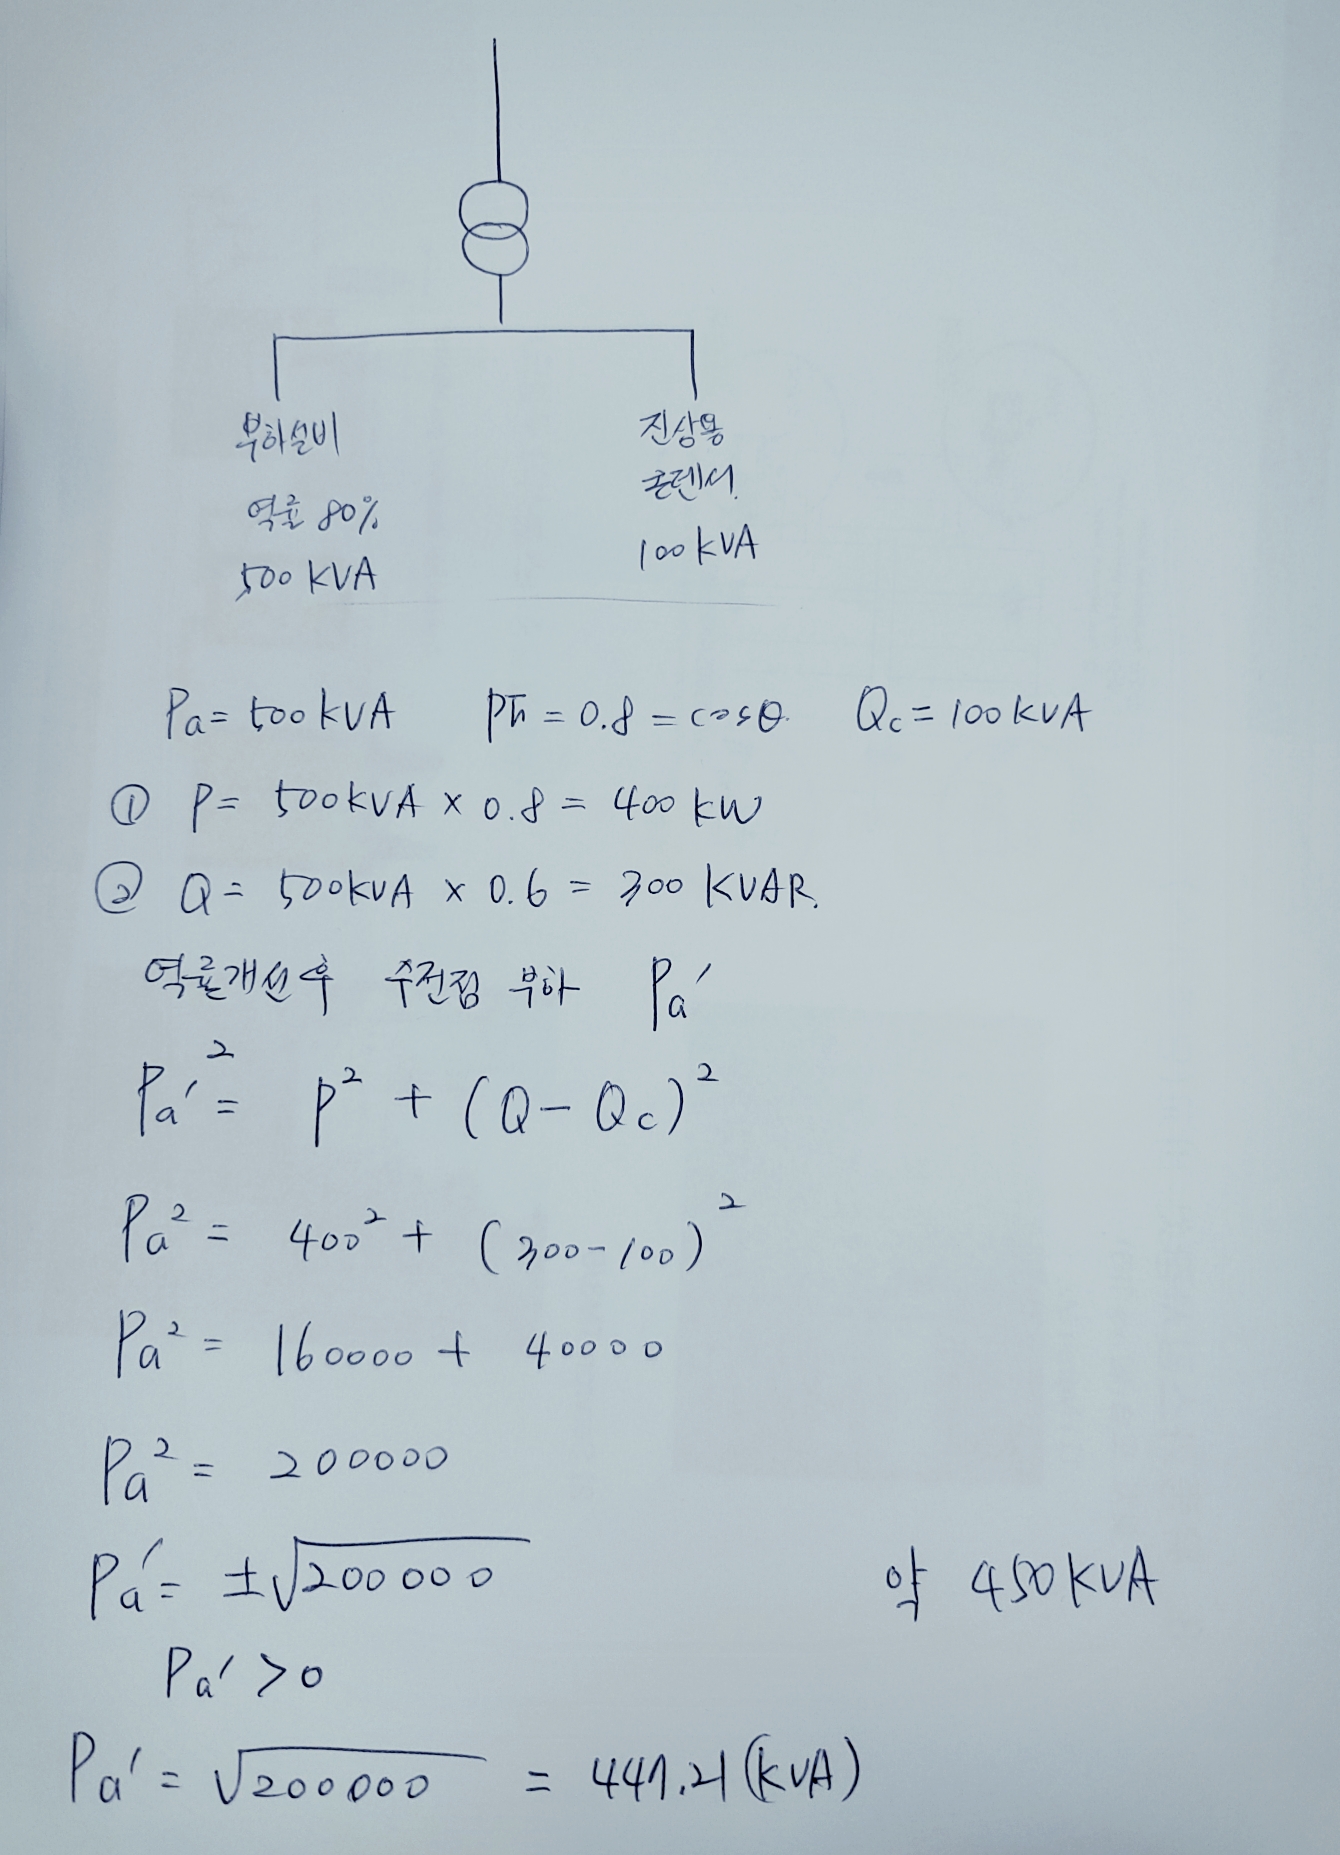 부하설비
역률 80%
500 KVA
진상용
콘덴서
100 KVA
Pa = 500 KVA Pf = 0.8 = cosθ. Qc = 100 KVA
① P = 500KVA × 0.8 = 400 KW
② Q = 500KVA × 0.6 = 300 KVAR.
역률개선후 수전점 부하 Pa′
Pa′² = P² + (Q - Qc)²
Pa² = 400² + (300-100)²
Pa² = 160000 + 40000
Pa² = 200000
Pa′ = ±√200000
약 450KVA
Pa′ > 0
Pa′ = √200000 = 447.21 (KVA)